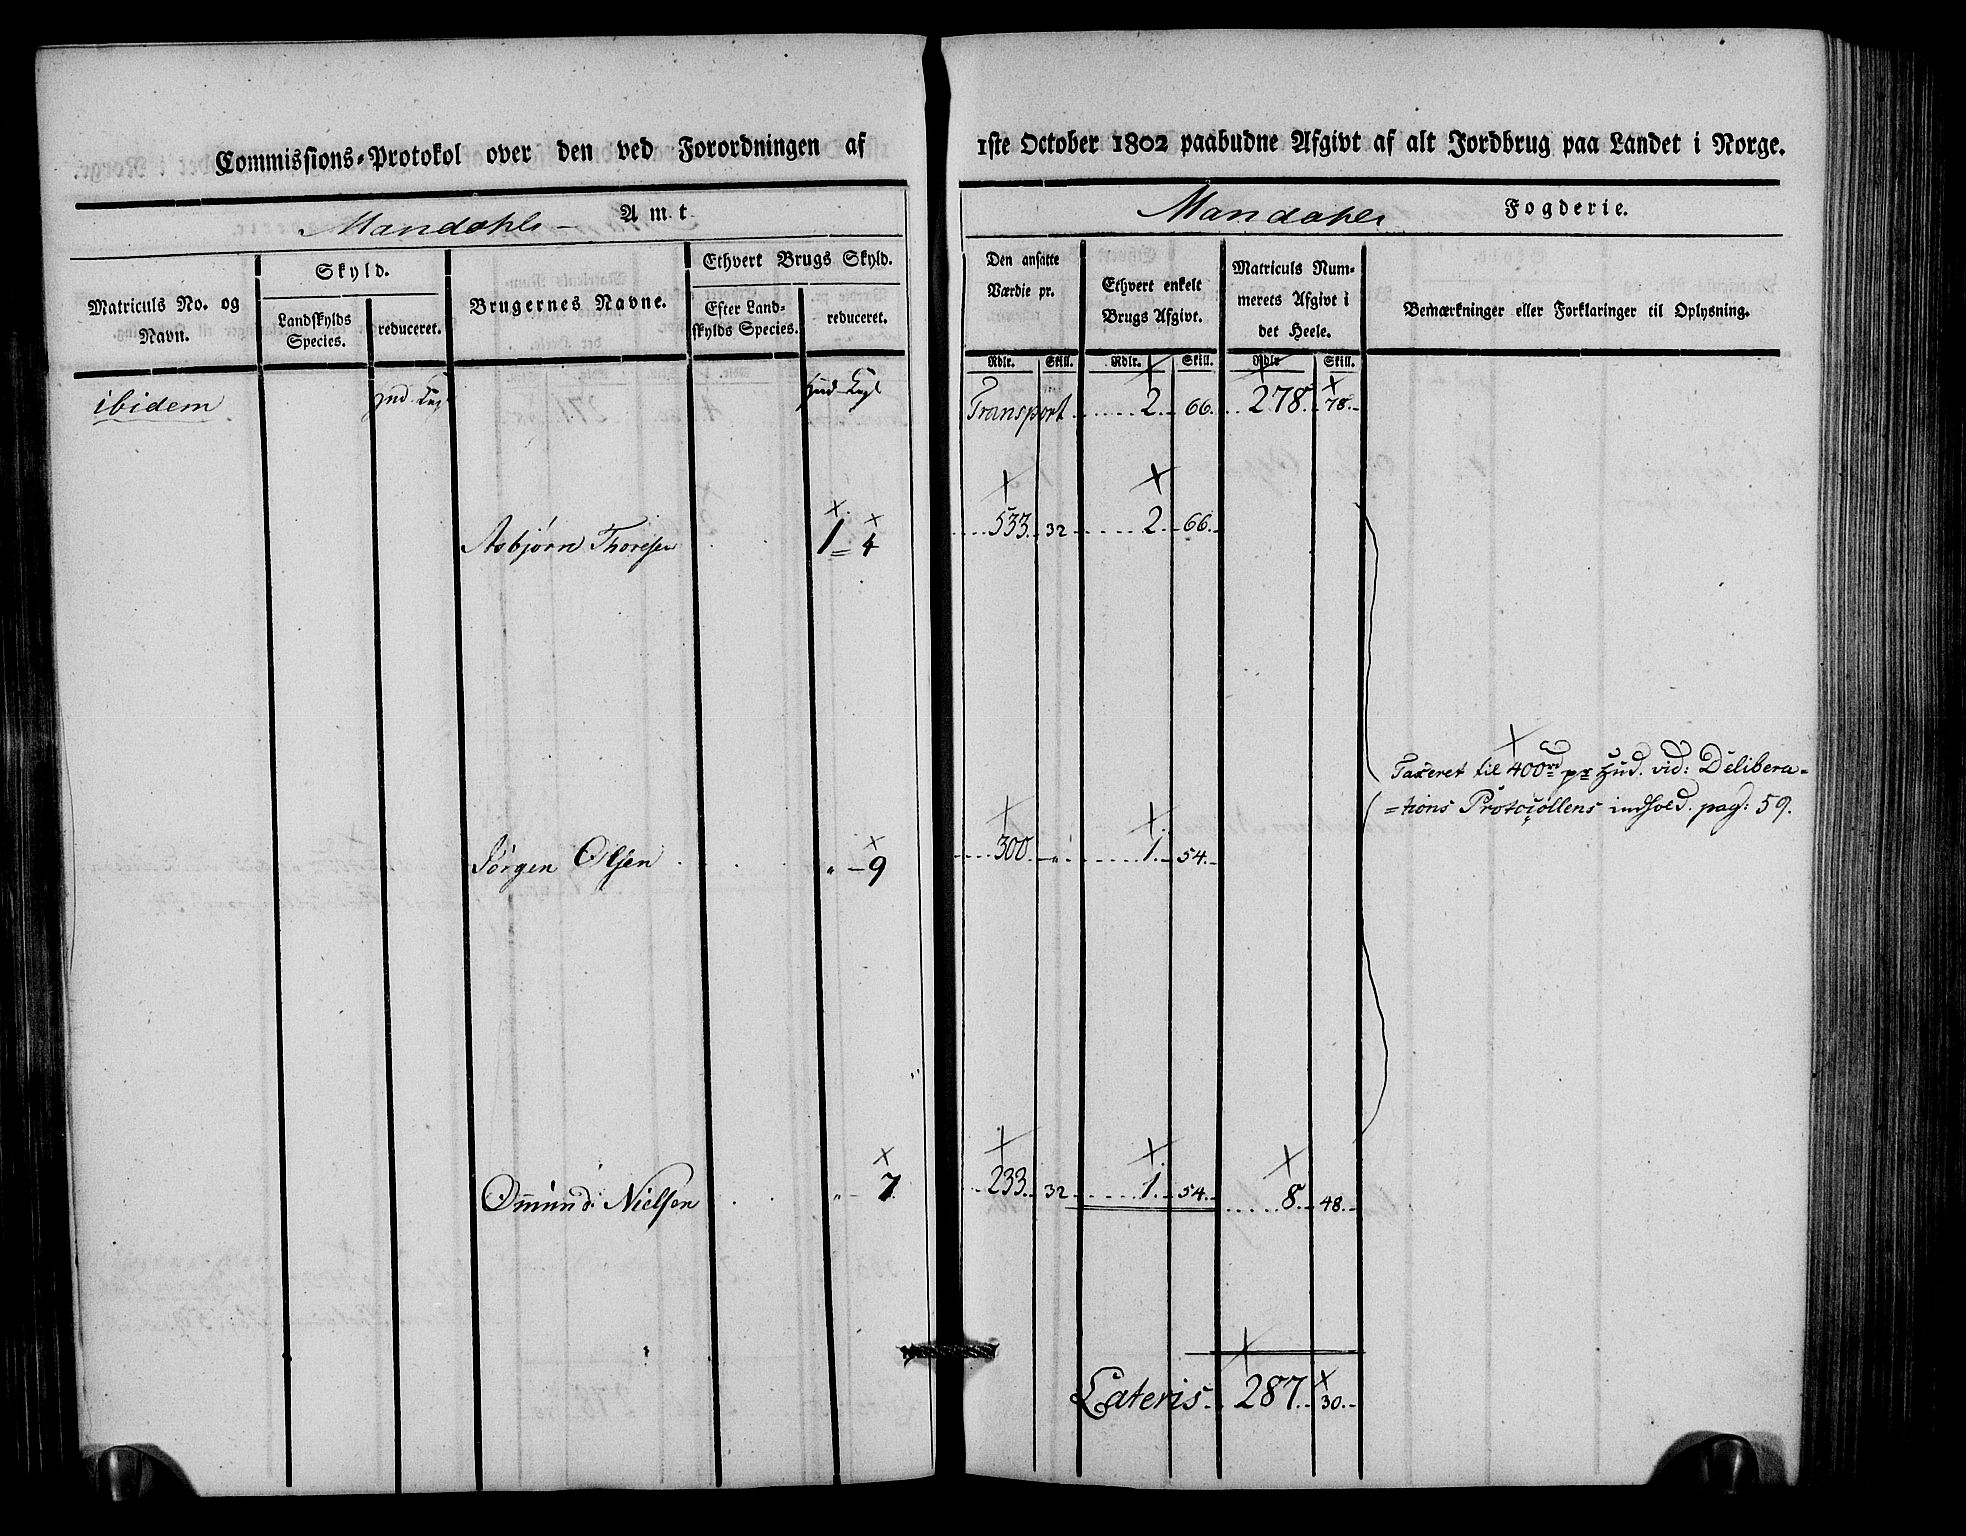 Commissions-Protokol over den ved Forordningen af 1ste October 1802 paabudne Afgivt af alt Jordbrug paa Landet i Norge.
Mandahls Amt
Mandahls Fogderie.
Matriculs No. og Navn.
Skyld.
Landskylds Species.
reduceret.
Brugernes Navne.
Ethvert Brugs Skyld.
Efter Landskylds Species.
reduceret.
Den ansatte Værdie pr.
Ethvert enkelt Brugs Afgivt.
Matriculs Nummerets Afgivt i det Heele.
Bemærkninger eller Forklaringer til Oplysning.
Rdlr. Skill. Rdlr. Skill. Rdlr Skill.
ibidem Hud Transport 2 66 278 78
Asbjørn Thoresen 1 4 533 32 2 66
Taxeret til 400rd pr Hud. vid: Delibera-
-tions Protocollens indhold. pag: 59.
Jørgen Olsen " 9 300 " 1 54
Omund Nielsen " 7 233 32 1 54 8 48
Lateris 287 30